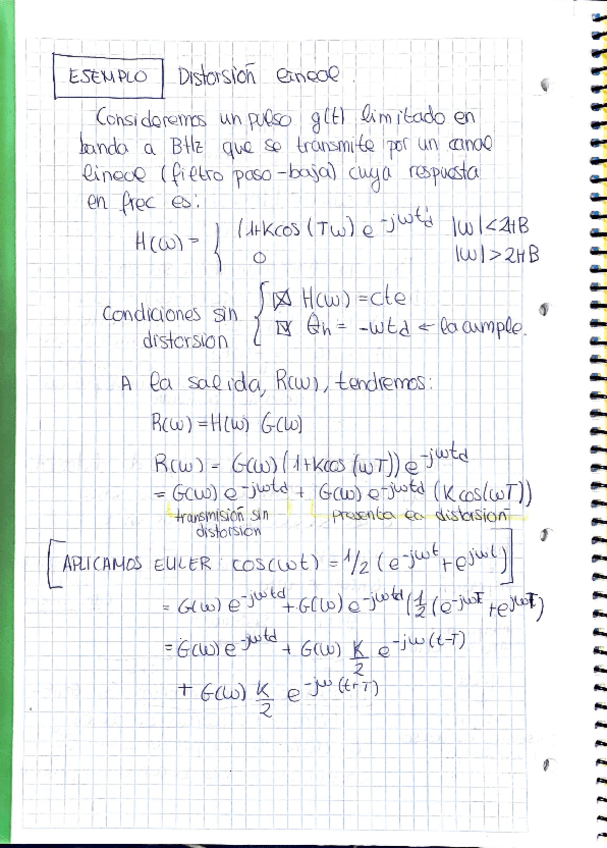 ESEMPLO Distorsión lineal.
Consideremos un pulso g(t) limitado en
banda a BHz que se transmite por un canal
lineal (filtro paso-baja) cuya respuesta
en frec es:
H(w) = { (1+Kcos(Tw) e^-jwtd |w|<2πB
0 |w|>2πB
Condiciones sin distorsion { ☒ H(w) = cte
☑ θh = -wtd ← la cumple.
A la salida, R(w), tendremos:
R(w) = H(w) G(w)
R(w) = G(w) (1+Kcos(wT)) e^-jwtd
= G(w) e^-jwtd + G(w) e^-jwtd (K cos(wT))
transmisión sin distorsion
presenta la distorsion
[APLICAMOS EULER: cos(wt) = 1/2 (e^-jwt + e^jwt)]
= G(w) e^-jwtd + G(w) e^-jwtd (1/2 (e^-jwT + e^jwT)
= G(w) e^-jwtd + G(w) K/2 e^-jw(t-T)
+ G(w) K/2 e^-jw(t+T)